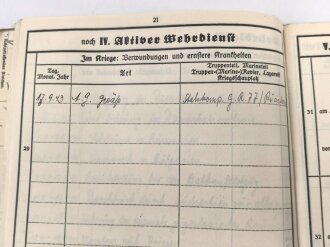 21
noch IV. Aktiver Wehrdienst
Im Kriege: Verwundungen und ernstere Krankheiten
Tag, Monat, Jahr
Art
Truppenteil, Marineteil
Truppen-(Marine-)Revier, Lazarett
Kriegsschauplatz
17.9.43 A.G. Gesäß G.R. 77/
29
30
V.
31 am
32 am